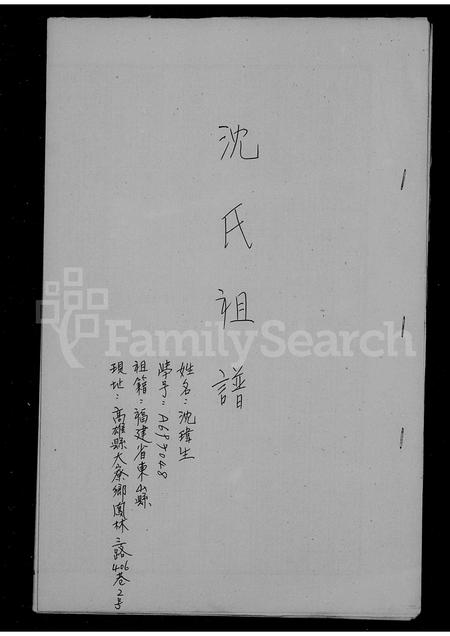 沈氏祖譜
姓名：沈瑋生
榮字：A689048
祖籍：福建省東山縣
現址：高雄縣大寮鄉鳳林三路406巷2号
FamilySearch